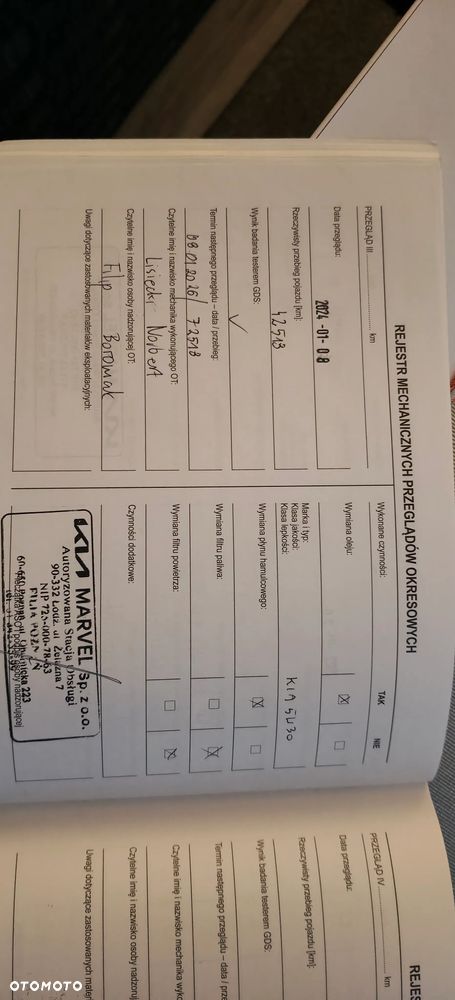 REJESTR MECHANICZNYCH PRZEGLĄDÓW OKRESOWYCH
PRZEGLĄD III ................ km
Data przeglądu:
2024 -01- 08
Rzeczywisty przebieg pojazdu [km]:
42513
Wynik badania testerem GDS:
Termin następnego przeglądu – data / przebieg:
08.01.2026/ 72513
Czytelne imię i nazwisko mechanika wykonującego OT:
Lisiecki Norbert
Czytelne imię i nazwisko osoby nadzorującej OT:
Filip Borowiak
Uwagi dotyczące zastosowanych materiałów eksploatacyjnych:
Wykonane czynności: TAK NIE
Wymiana oleju:
Marka i typ:
Klasa jakości:
Klasa lepkości:
KIA 5W30
Wymiana płynu hamulcowego:
Wymiana filtru paliwa:
Wymiana filtru powietrza:
Czynności dodatkowe:
KIA MARVEL Sp. z o.o.
Autoryzowana Stacja Obsługi
90-332 Łódź, ul. Żelazna 7
NIP 725-000-78-63
FILIA
Pieczątka ASO i podpis osoby nadzorującej
REJES
PRZEGLĄD IV ................ km
Data przeglądu:
Rzeczywisty przebieg pojazdu [km]:
Wynik badania testerem GDS:
Termin następnego przeglądu – data / prze
Czytelne imię i nazwisko mechanika wyko
Czytelne imię i nazwisko osoby nadzoruj
Uwagi dotyczące zastosowanych mater
OTOMOTO